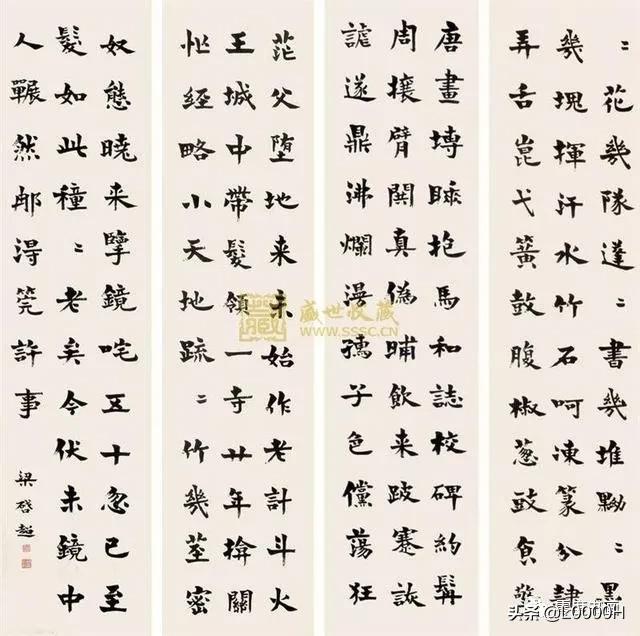 〻花幾隊蓬〻書幾堆黝〻墨
幾塊揮汗水竹石呵凍篆分隸
弄舌崑弋簧鼓腹椒葱豉食擎
唐畫塼睡抱馬和誌校碑約髯
周攘臂鬨真偽晡飲来跛蹇詼
謔遂鼎沸爛漫孺子色儻蕩狂
茫父墮地来未始作老計斗火
王城中帶髮領一寺廿年揜關
忙經略小天地疏〻竹幾莖密
奴態曉来擥鏡咤五十忽已至
髮如此種〻老矣今伏未鏡中
人囅然那得筦許事
梁啓超
盛世收藏
WWW.SSSC.CN
头条 @L0000H